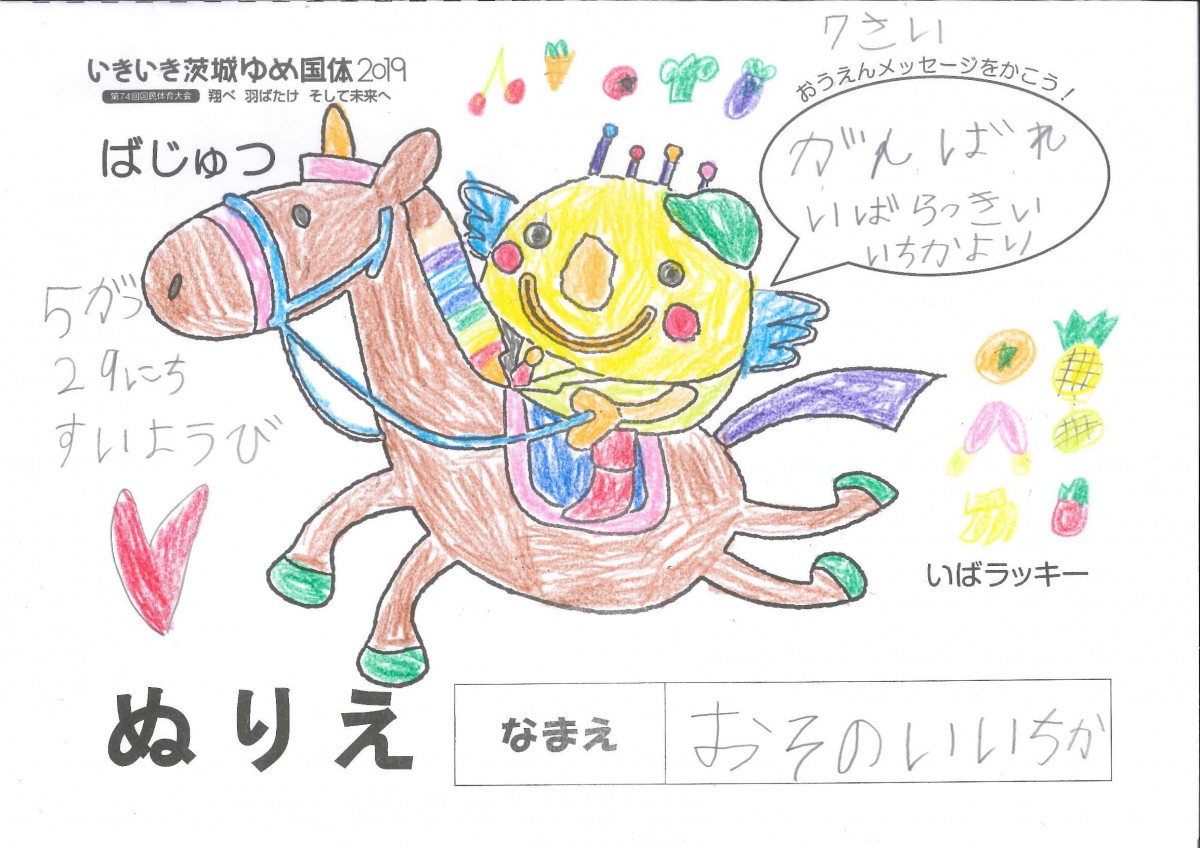 7さい
いきいき茨城ゆめ国体2019
第74回国民体育大会 翔べ 羽ばたけ そして未来へ
ばじゅつ
おうえんメッセージをかこう!
がんばれ
いばらっきい
いちかより
5がつ
29にち
すいようび
いばラッキー
ぬりえ
なまえ
おそのいいちか